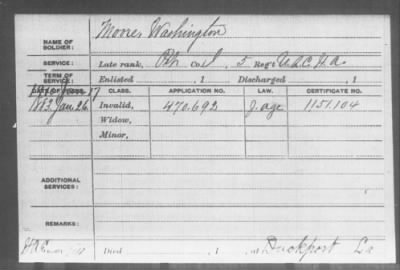 NAME OF SOLDIER: Moore, Washington
SERVICE: Late rank, Co. I, 5 Reg't U.S.C.H.A.
TERM OF SERVICE: Enlisted , 1 Discharged , 1
CLASS. APPLICATION NO. LAW. CERTIFICATE NO.
1883 Jan. 26 Invalid, 470.692 J. age 1151.104
Widow,
Minor,
ADDITIONAL SERVICES:
REMARKS:
Died , 1 , at Duckport La